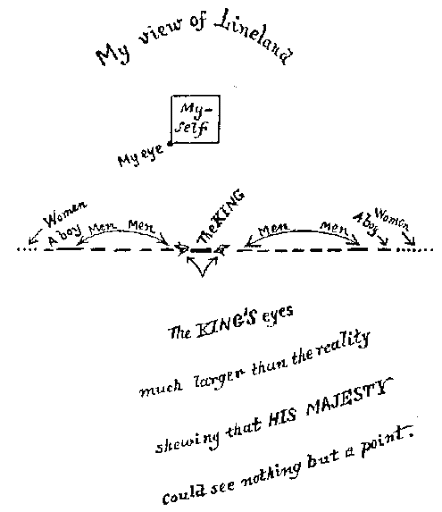 My view of Lineland
My-
self
My eye
Women
A boy
Men
Men
The KING
Men
Men
A boy
Women
The KING'S eyes
much larger than the reality
shewing that HIS MAJESTY
could see nothing but a point.